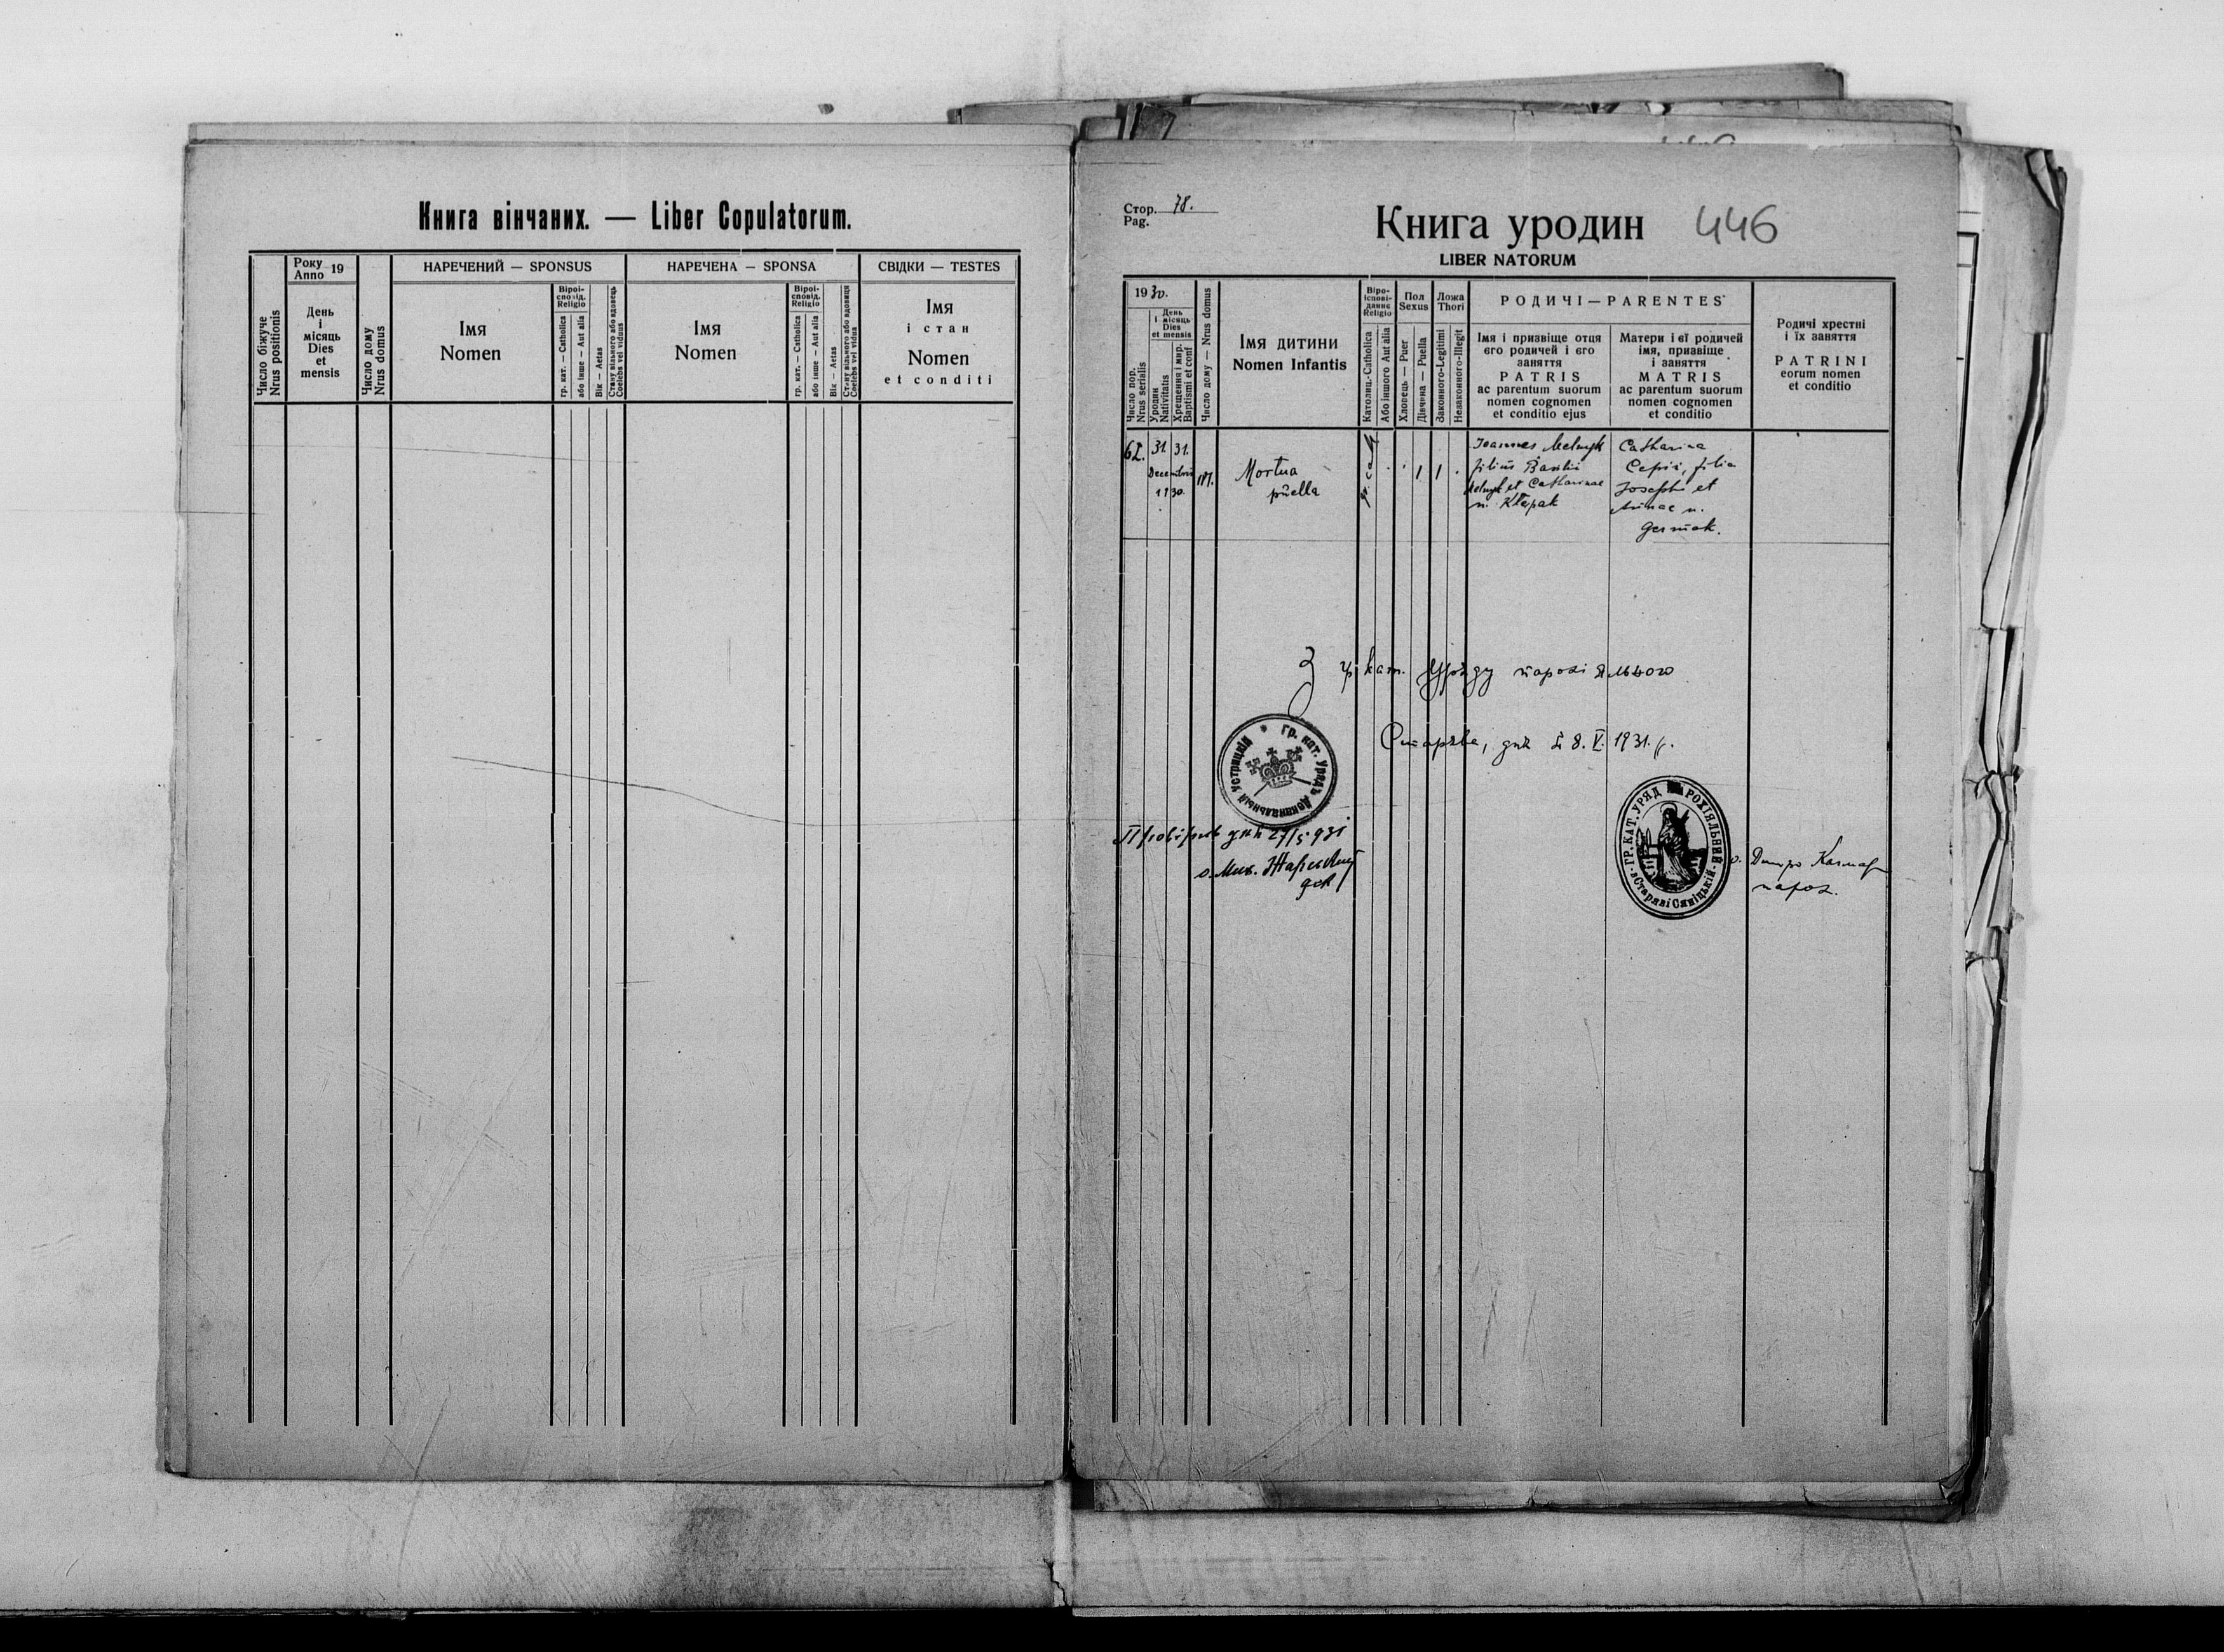 Книга вінчаних. — Liber Copulatorum.
Число біжуче
Nrus positionis
Року
Anno 19
День
і
місяць
Dies
et
mensis
Число дому
Nrus domus
НАРЕЧЕНИЙ — SPONSUS
Імя
Nomen
Віроі-
сповід.
Religio
гр. кат. — Catholica
або інше — Aut alia
Вік — Aetas
Стану вільного або вдовець
Coelebs vel viduus
НАРЕЧЕНА — SPONSA
Імя
Nomen
Віроі-
сповід.
Religio
гр. кат. — Catholica
або інше — Aut alia
Вік — Aetas
Стану вільного або вдовиця
Coelebs vel vidua
СВІДКИ — TESTES
Імя
і стан
Nomen
et conditi
Стор. 78.
Pag.
Книга уродин 446
LIBER NATORUM
1930.
Число пор.
Nrus serialis
День
і місяць
Dies
et mensis
Уродин
Nativitatis
Хрещення і мир.
Baptismi et conf
Число дому — Nrus domus
Імя дитини
Nomen Infantis
Віро-
ісповід-
данне
Religio
Католиц.-Catholica
Або іншого Aut alia
Пол
Sexus
Хлопець — Puer
Дівчина — Puella
Ложа
Thori
Законного-Legitimi
Незаконного-Illegit
РОДИЧІ — PARENTES
Імя і призвіще отця
єго родичей і єго
заняття
PATRIS
ac parentum suorum
nomen cognomen
et conditio ejus
Матери і єї родичей
імя, призвіще
і заняття
MATRIS
ac parentum suorum
nomen cognomen
et conditio
Родичі хрестні
і їх заняття
PATRINI
eorum nomen
et conditio
31. 31.
Decembris
1930.
Mortua
puella
gr. cath
1 1
Joannes Melnyk
filius Basilii
Melnyk et Catharinae
n.
Catharina
filia
Josephi et
Annae n.
Germak.
З гр. кат. Уряду парохіяльного
Старява, дня 8. V. 1931. р.
ГР. КАТ. УРЯДЪ ДЕКАНАЛЬНЫЙ УСТРИЦКІЙ
Провірив дня 27/5 931
о. Мих.
дек
ГР. КАТ. УРЯД ПАРОХІЯЛЬНИЙ
в Старяві Сяніцькій
о. Дмитро
парох.